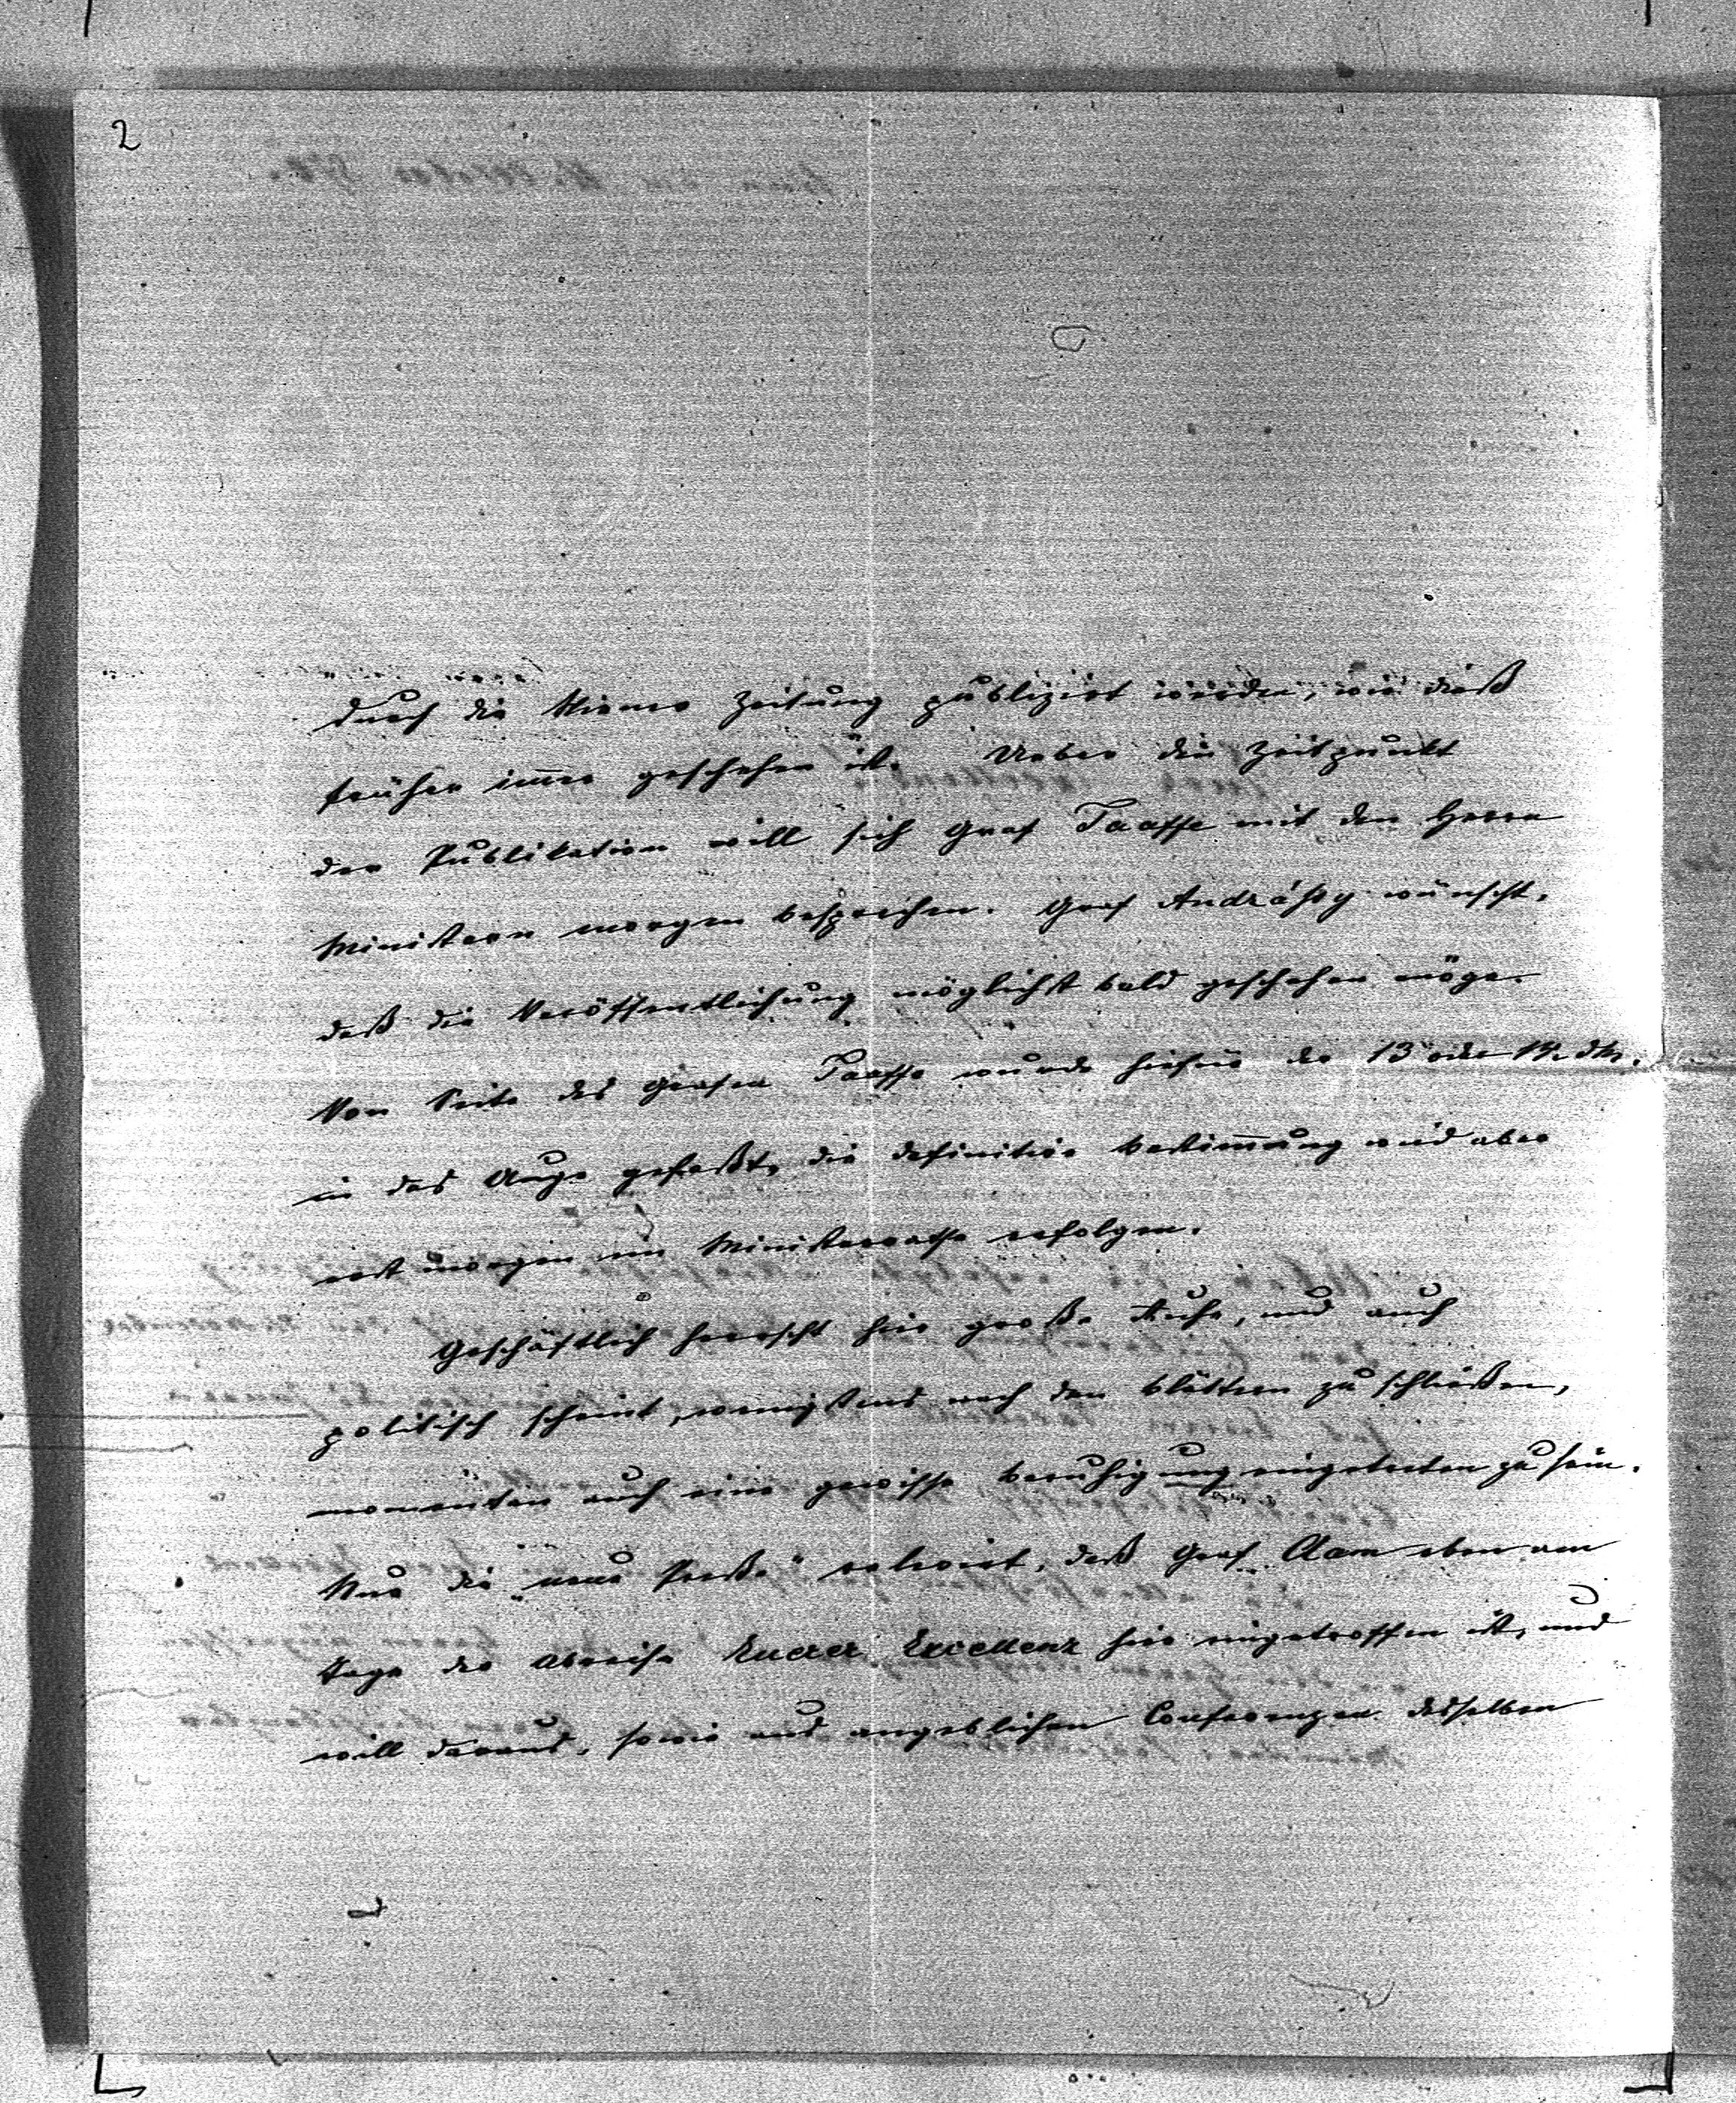 2
durch die Wiener Zeitung publizirt werden, wie dieß
früher imer geschehen ist. Ueber den Zeitpunkt
der Publikation will sich Graf Taaffe mit den Herrn
Ministern morgen besprechen. Graf Andrássy wünscht,
daß die Veröffentlichung möglichst bald geschehen möge.
Von Seite des Grafen Taaffe wurde hiefür der 13 oder 14. dM.
in das Auge gefaßt, die definitive Bestimung wird aber
erst morgen im Ministerrathe erfolgen.
Geschäftlich herrscht hier große Ruhe, und auch
politisch scheint, wenigstens nach den Blättern zu schließen,
momentan auch eine gewisse Beruhigung eingetreten zu sein.
Nur die „neue Preße" relevirt, daß Graf Clam eben am
Tage der Abreise Euerer Excellenz hier eingetroffen ist, und
will daraus, sowie aus angeblichen Conferenzen desselben